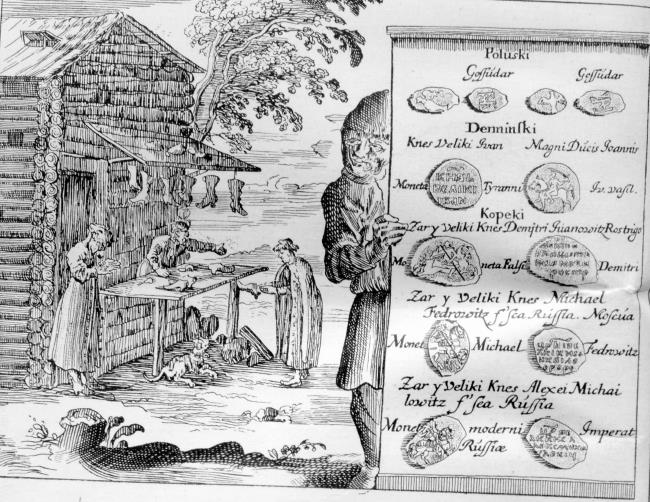 Poluski
Gossúdar Gossúdar
Denninski
Knes Veliki Ivan Magni Dúcis Ioannis
Moneta Tyranni Iv. vasl.
Kopeki
Zar y Veliki Knes Demjtri Iuanowitz Rostrigo
Mo neta Falsi Demitri
Zar y Veliki Knes Michael
Fedrowitz f'sea Rússia. Moscúa
Monet Michael Fedrowitz
Zar y Veliki Knes Alexei Michai
lowitz f'sea Rússia
Monet moderni Imperat
Rússiæ